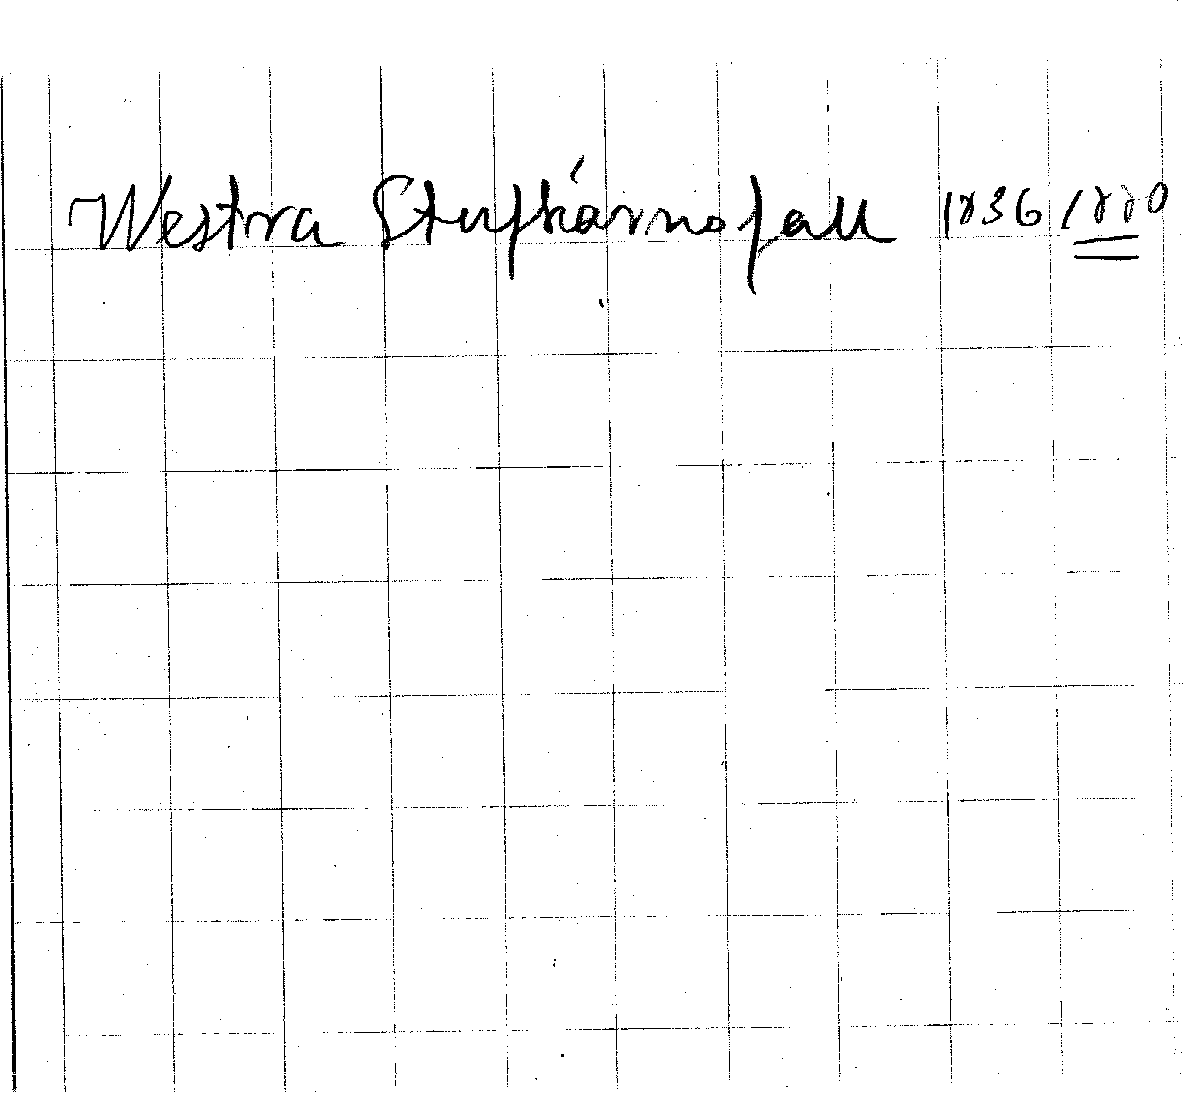 Westra Stufkárnofall 1836/880